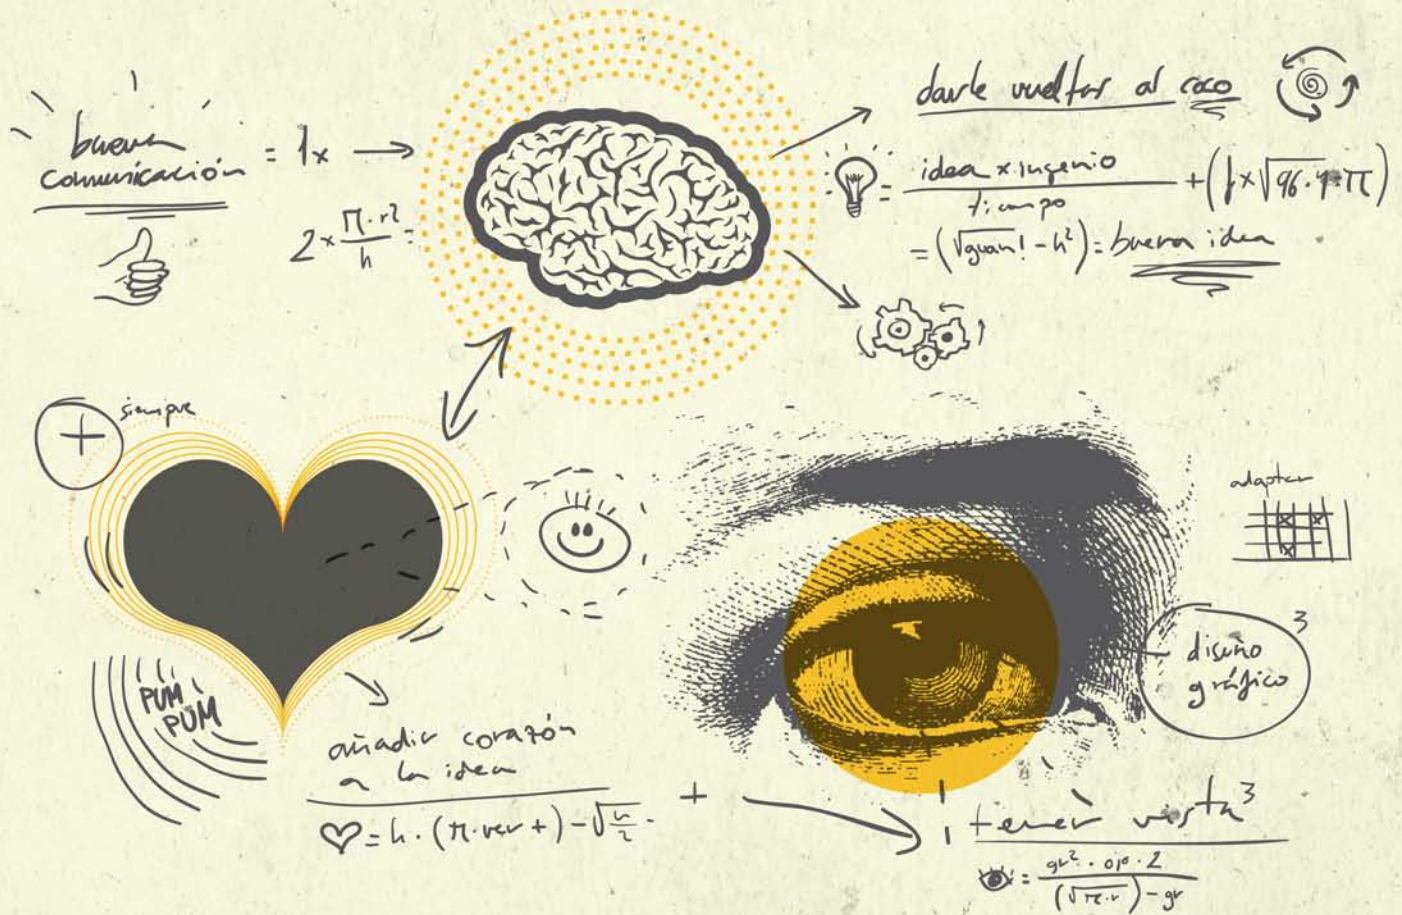 buena
comunicación = 1x
2 x π·r² / h =
darle vueltas al coco
= idea x ingenio / tiempo + (1 x √96·4·π)
= (√guan! - h²) = buena idea
+ siempre
PUM
PUM
añadir corazón
a la idea
♡ = h · (π·ver +) - √
+
adaptar
diseño 3
gráfico
tener vista 3
= gr² · ojo · 2 / (√π·r) - gr